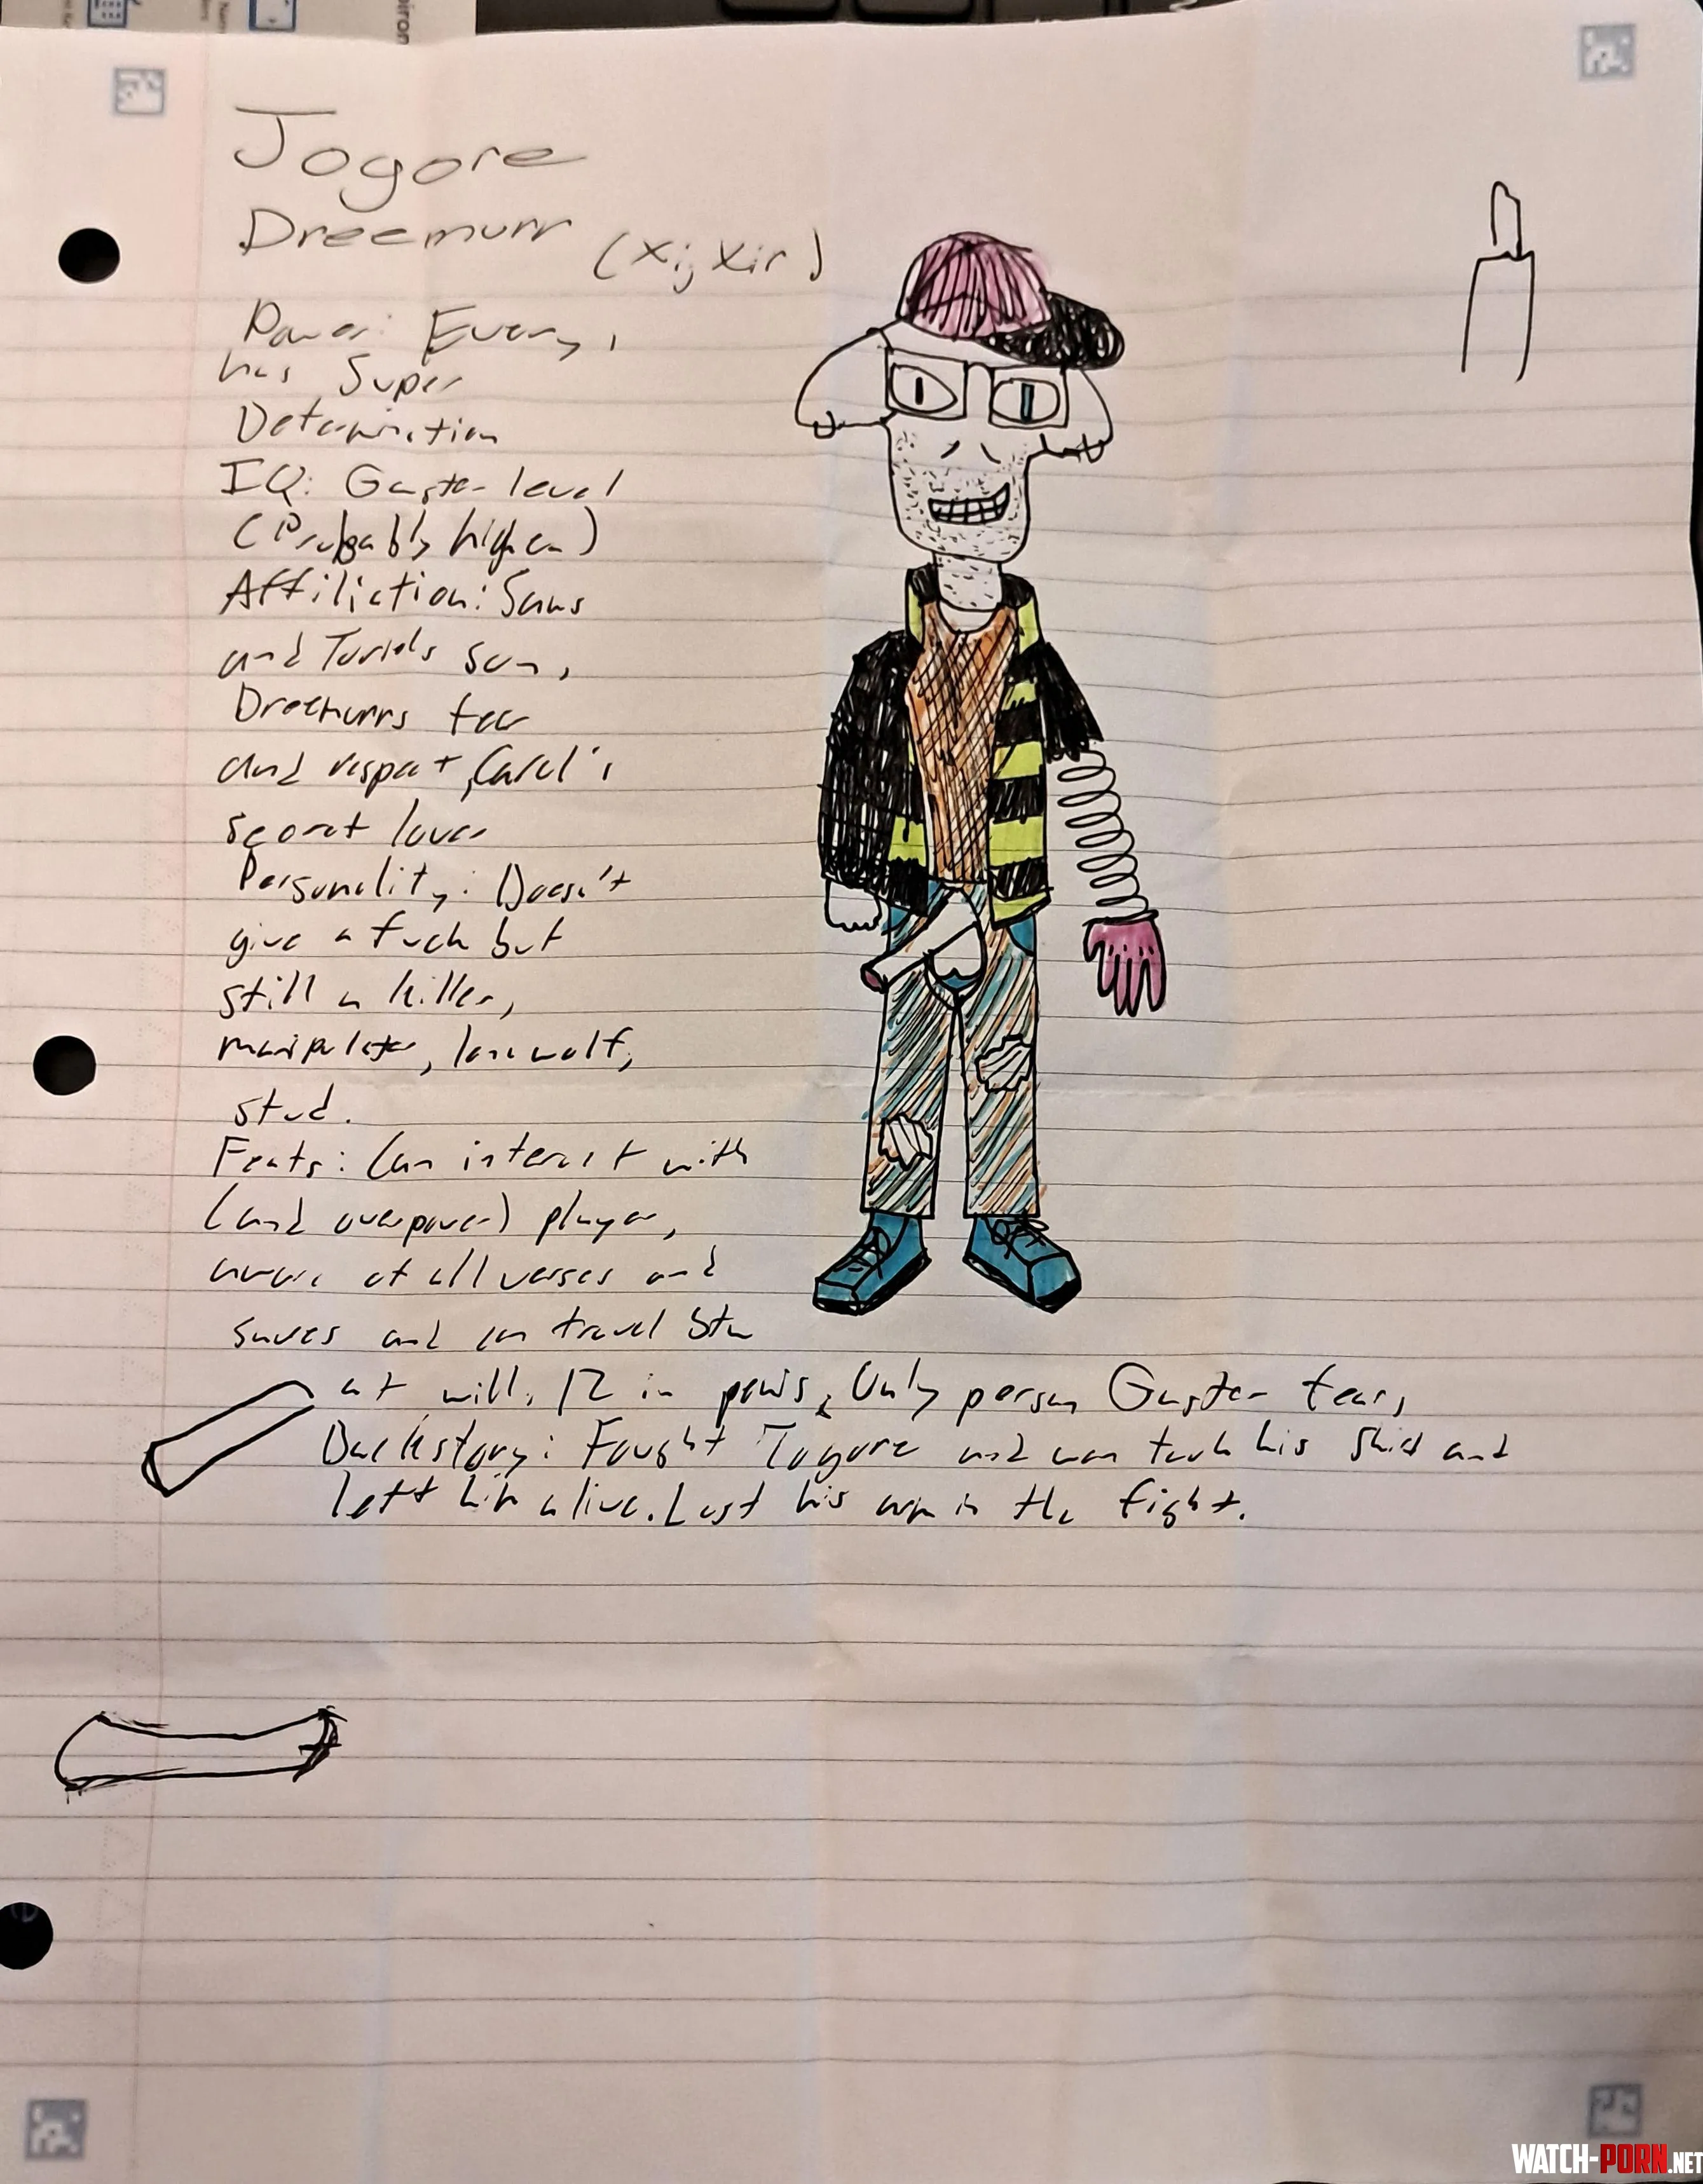 Jogore
Dreemurr (Xi, Xir)
Power: Every,
has Super
Determination
IQ: Gaster level
(Probably higher)
Affiliation: Sans
and Toriels son,
Dreemurrs fear
and respect, Carol's
secret lover
Personality: Doesn't
give a fuck but
still a killer,
manipulator, lone wolf,
stud.
Feats: Can interact with
(and overpower) player,
aware of all verses and
saves and can travel btw
at will, 12 in penis, Only person Gaster fears
Backstory: Fought and won took his shirt and
left him alive. Lost his arm in the fight.
WATCH-PORN.NET